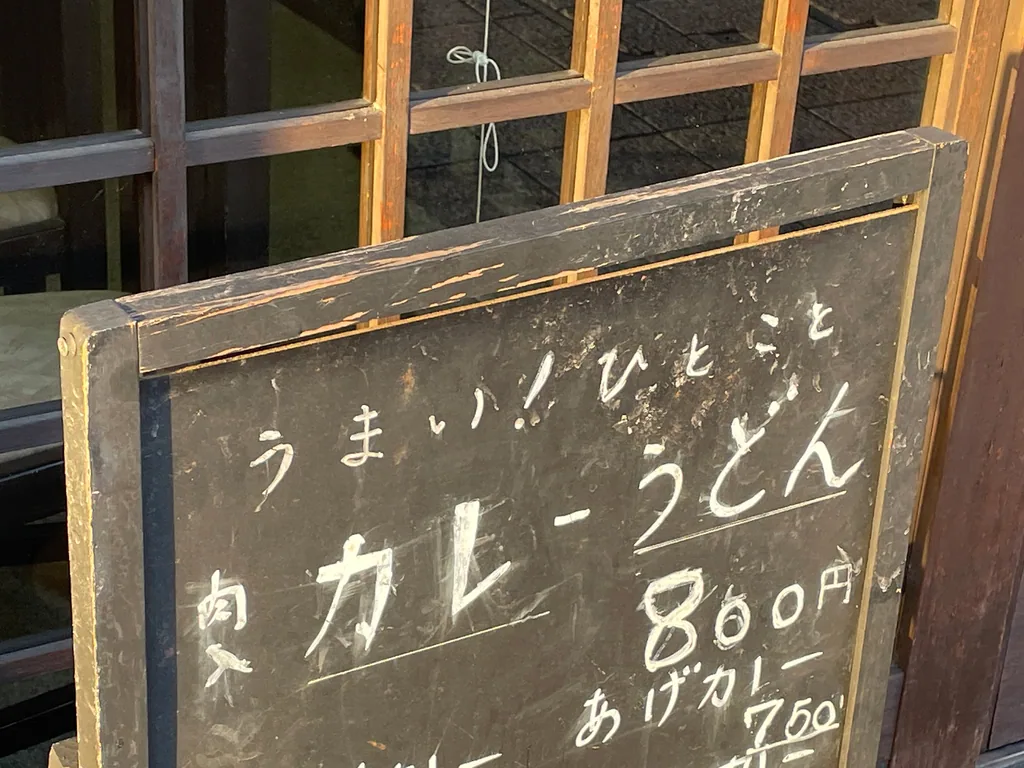 うまい!ひとこと
肉入 カレーうどん
800円
あげカレー
750